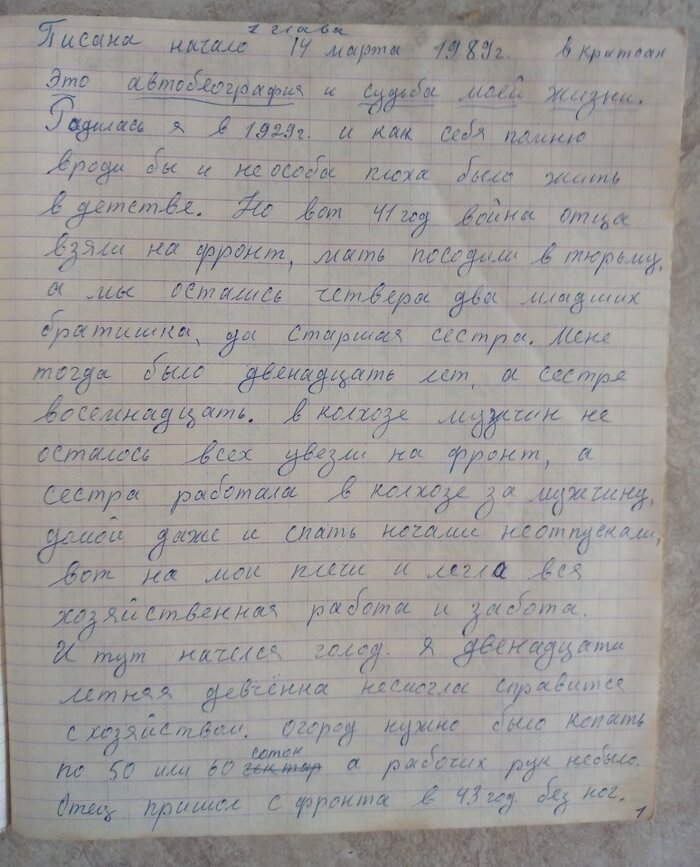 1 глава
Писана начало 14 марта 1989г. в Кратоан
Это автобеография и судьба моей жизни.
Радилась я в 1929г. и как себя помню
вроди бы и не особа плоха было жить
в детстве. Но вот 41 год война отца
взяли на фронт, мать посодили в тюрьму,
а мы остались четвера два младших
братишка, да старшая сестра. Мене
тогда было двенадцать лет, а сестре
восемнадцать. в колхозе мужчин не
осталось всех увезли на фронт, а
сестра работала в колхозе за мужчину,
домой даже и спать ночами неотпускали,
вот на мои плечи и легла вся
хозяйственная работа и забота.
И тут начелся голод. Я двенадцати
летняя девчёнка несмогла справится
с хозяйством. Огород нужно было копать
по 50 или 60 гектар соток а рабочих рук небыло.
Отец пришол с фронта в 43 год. без ног.
1